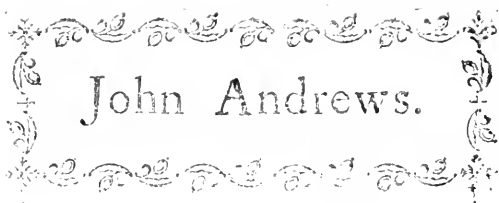 John Andrews.